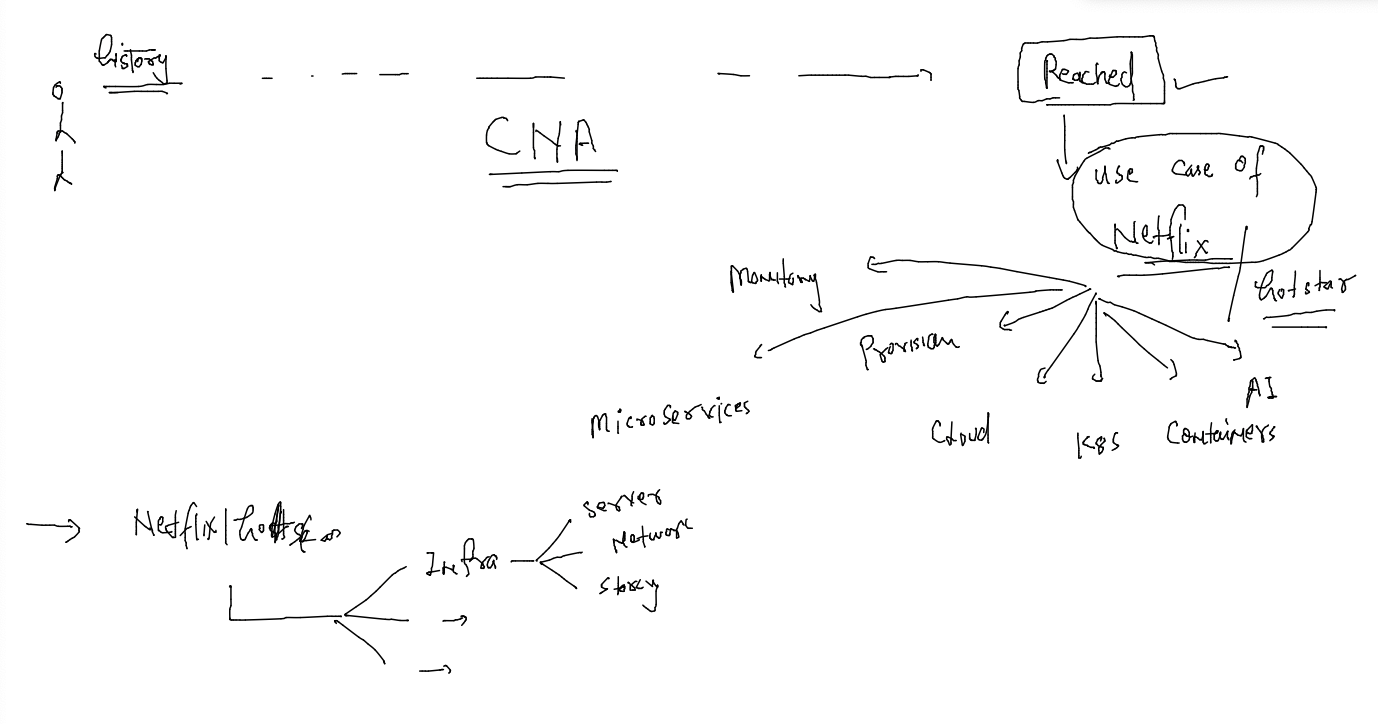 history
Reached
CNA
use case of
Netflix
hotstar
Monitory
Provision
AI
Microservices
Cloud
K8S
Containers
Netflix/hotstar
Infra
Server
Network